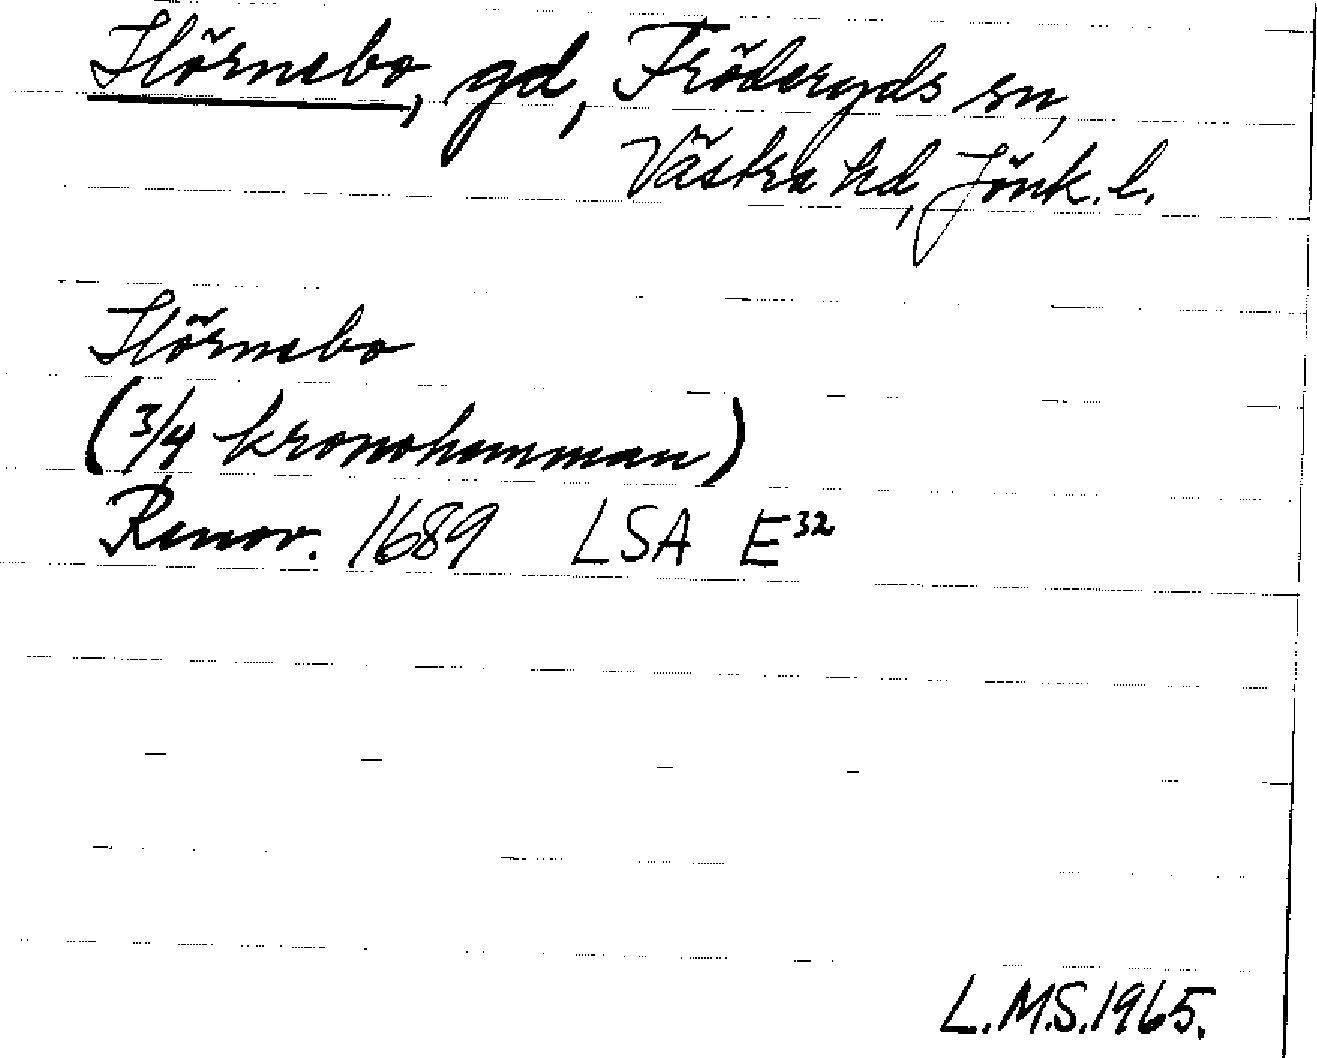 Hörnebo, gd, Fröderyds sn,
Västra hd, Jönk. l.
Hörnebo
(3/4 kronohemman)
Renov. 1689 LSA E³²
L.M.S.1965.